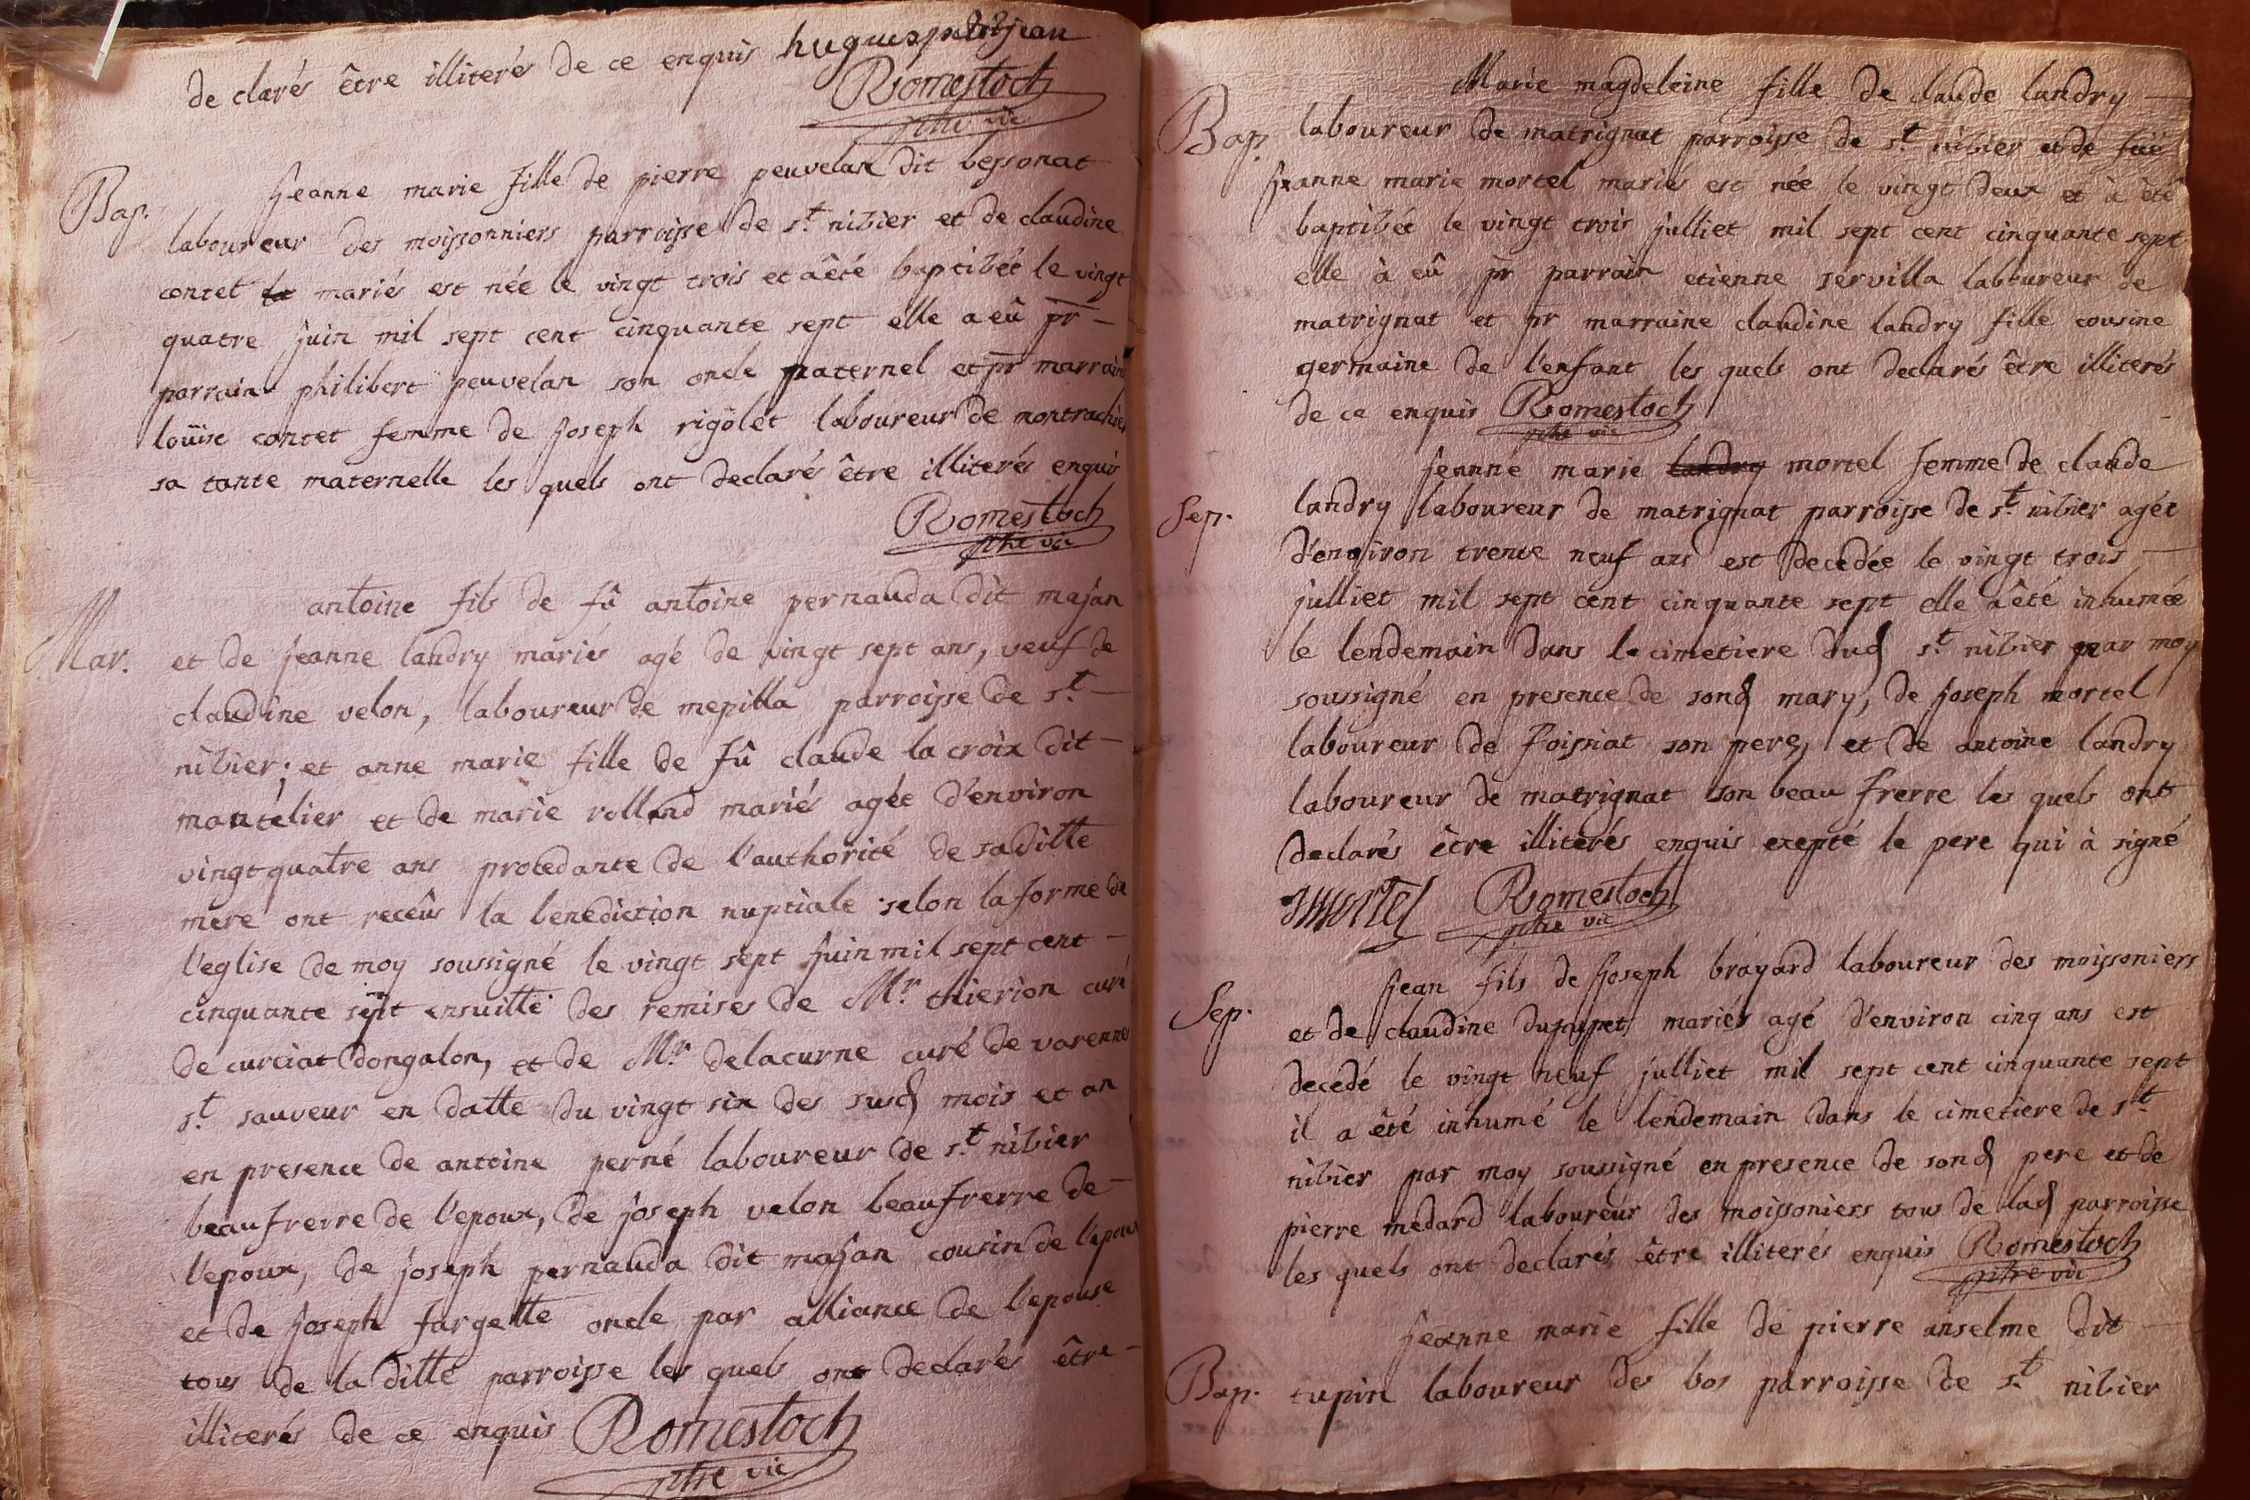 declarés être illiterés de ce enquis hugues petitjean
Romestoch
ptre vic
Bap.
jeanne marie fille de pierre peuvelan dit bessonat
laboureur des moissonniers parroisse de st. nibier et de claudine
contet la mariés est née le vingt trois et a êté baptibéé le vingt
quatre juin mil sept cent cinquante sept elle a eû pr
parrain philibert peuvelan son oncle paternel et pr marraine
loüise contet femme de joseph rigolet laboureur de montrachier
sa tante maternelle les quels ont declarés être illiterés enquis
Romestoch
ptre vic
Mar.
antoine fils de fû antoine pernauda dit majan
et de jeanne landry mariés agé de vingt sept ans, veuf de
claudine velon, laboureur de mepilla parroisse de st.
nibier; et anne marie fille de fû claude la croix dit
mantelier et de marie rolland mariés agée d'environ
vingt quatre ans procedante de l'authorité de saditte
mere ont recêus la benediction nuptiale selon la forme de
l'eglise de moy soussigné le vingt sept juin mil sept cent
cinquante sept ensuitte des remises de Mr. thierion curé
de curciat dongalon, et de Mr. delacurne curé de varennes
st. sauveur en datte du vingt six des susd mois et an
en presence de antoine perné laboureur de st. nibier
beaufrerre de l'epoux, de joseph velon beaufrerre de
l'epoux, de joseph pernauda dit majan cousin de l'epoux
et de joseph fargette oncle par alliance de l'epouse
tous de la ditte parroisse les quels ont declarés être
illiterés de ce enquis Romestoch
ptre vic
Marie magdeleine fille de claude landry
Bap. laboureur de matrignat parroisse de st. nibier et de fûe
jeanne marie mortel mariés est née le vingt deux et à êté
baptibéé le vingt trois julliet mil sept cent cinquante sept
elle à eû pr parrain etienne servilla laboureur de
matrignat et pr marraine claudine landry fille cousine
germaine de l'enfant les quels ont declarés être illiterés
de ce enquis Romestoch
ptre vic
jeanne marie landry mortel femme de claude
Sep. landry laboureur de matrignat parroisse de st. nibier agée
d'environ trente neuf ans est decedée le vingt trois
julliet mil sept cent cinquante sept elle a êté inhumée
le lendemain dans le cimetiere dud st. nibier par moy
soussigné en presence de sond mary, de joseph mortel
laboureur de foissiat son pere, et de antoine landry
laboureur de matrignat son beau frerre les quels ont
declarés être illiterés enquis exepté le pere qui à signé
J mortel Romestoch
ptre vic
jean fils de joseph brayard laboureur des moissoniers
Sep. et de claudine dupupet mariés agé d'environ cinq ans est
decedé le vingt neuf julliet mil sept cent cinquante sept
il a êté inhumé le lendemain dans le cimetiere de st.
nibier par moy soussigné en presence de sond pere et de
pierre medard laboureur des moissoniers tous de lad parroisse
les quels ont declarés être illiterés enquis Romestoch
ptre vic
jeanne marie fille de pierre anselme dit
Bap. tupin laboureur des bos parroisse de st. nibier